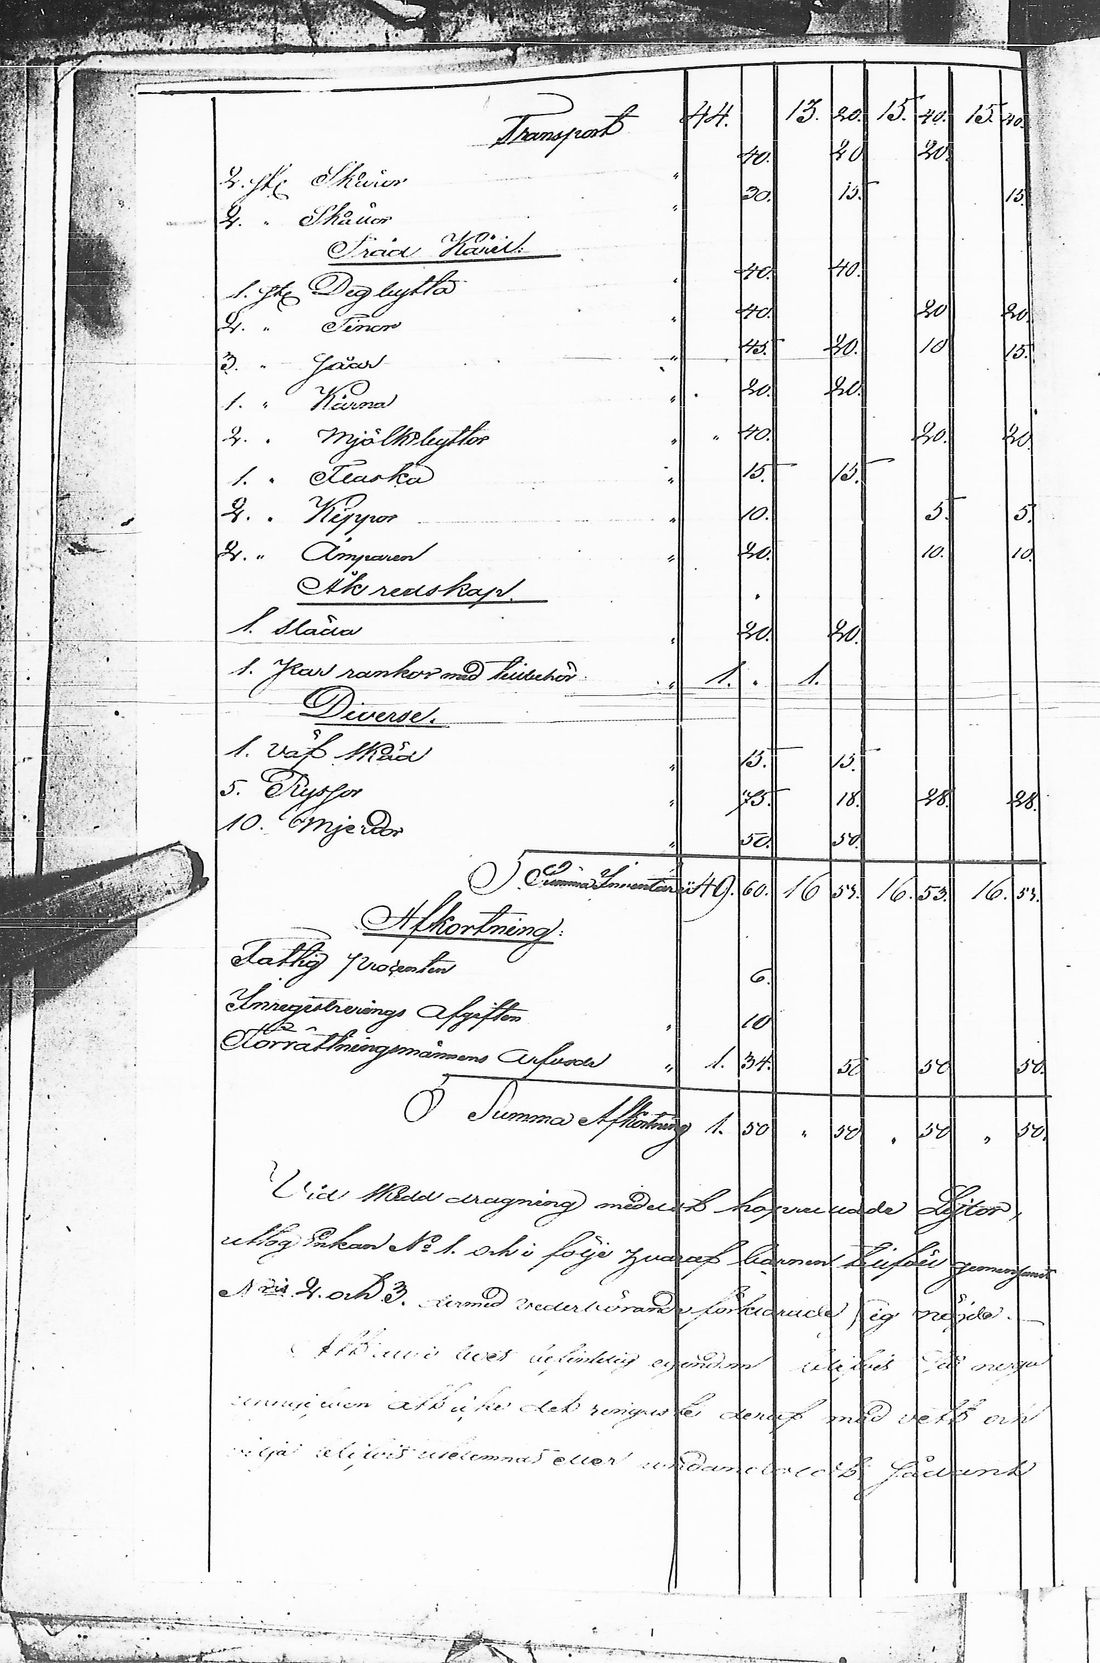 Transport 44. 13. 20. 15. 40. 15. 40.
2. st Skåror " 40. 20 20.
2. " Skåror " 30. 15. 15.
Träd Käril:
1. st Degbytta " 40. 40.
2. " Tinor " 40. 20 20.
3. " Såar " 45. 20. 10 15.
1. " Kärna " 20. 20.
2. " Mjölkbyttor " " 40. 20. 20.
1. " Flaska " 15. 15.
2. " Kippor " 10. 5. 5.
2. " Ämparen " 20. 10. 10.
Åk redskap.
1. Släda " 20. 20.
1. Par rankor med tillbehör " 1. " 1.
Diverse.
1. Väf skäd " 15. 15.
5. Ryssjor " 75. 18. 28. 28.
10. Mjerdor " 50. 50.
Summa Inventarii 49. 60. 16 53. 16. 53. 16. 53.
Afkortning:
Fattig procenten 6.
Inregistrerings Afgiften " 10
Förrättningsmännens Arfvode " 1. 34. 50 50 50.
Summa Afkortning 1. 50 " 50 " 50 " 50.
Vid skedd dragning medelst hoprullade Lejtor,
uttog Enkan No 1. och i följe hvaraf barnen tillföll gemensamt
N:ris 2. och 3. dermed vederbörande förklarade sig nöjde.
Att
att icke det ringaste deraf med vett och
vilja utelemnats eller sådant